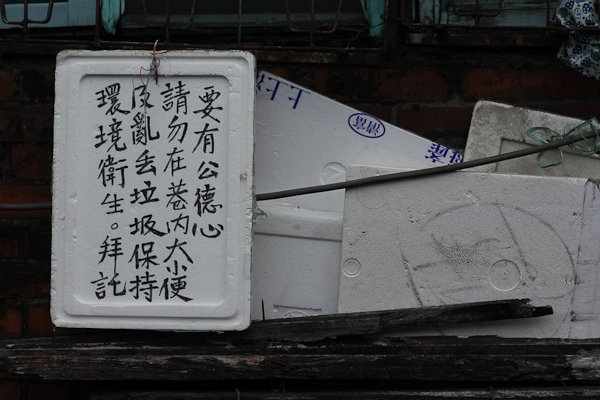 要有公德心
請勿在巷內大小便
及亂丟垃圾保持
環境衛生。拜託
上上